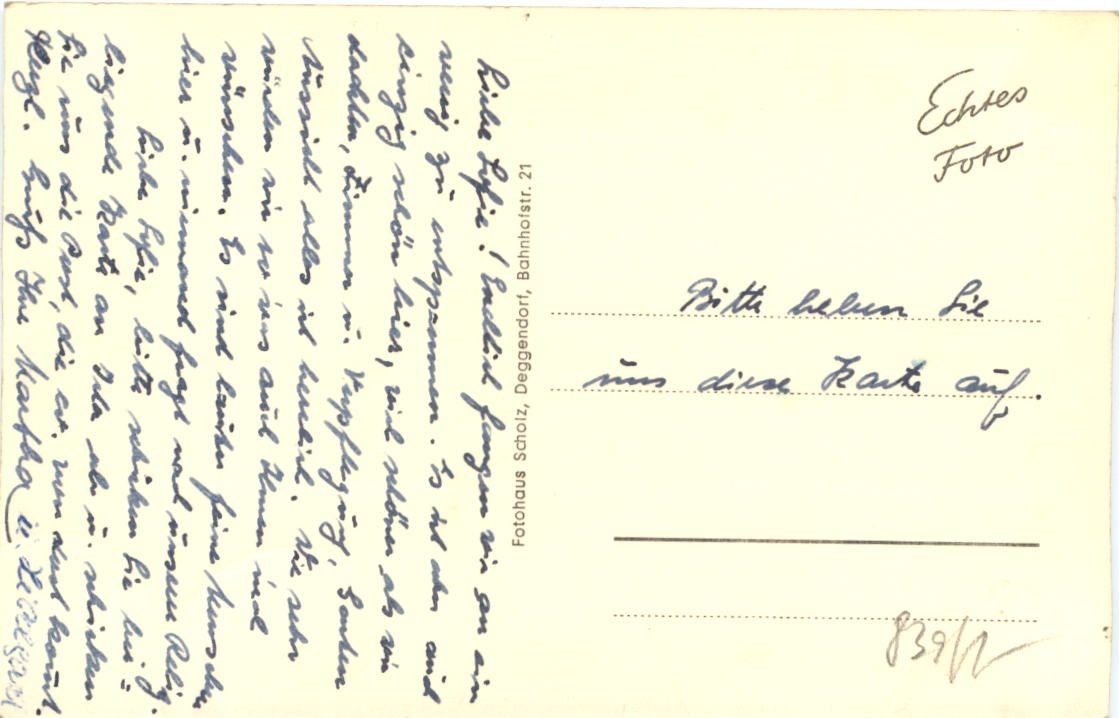 Liebe Sofie! Endlich fangen wir an ein
wenig zu entspannen. Es ist aber auch
einzig schön hier, viel schöner als wir
dachten, Zimmer u. Verpflegung, Garten
Aussicht alles ist herrlich. Wie sehr
würden wir so was auch Ihnen mal
wünschen. Es sind lauter feine Menschen
hier u. niemand fragt nach unserer Relig.
Liebe Sofie, bitte schicken Sie bei=
liegende Karte an ab u. schicken
Sie uns die Post, die ev. nun dort kommt.
Herzl. Grüße Ihre Martha u.
Fotohaus Scholz, Deggendorf, Bahnhofstr. 21
Echtes
Foto
Bitte heben Sie
uns diese Karte auf.
839/1